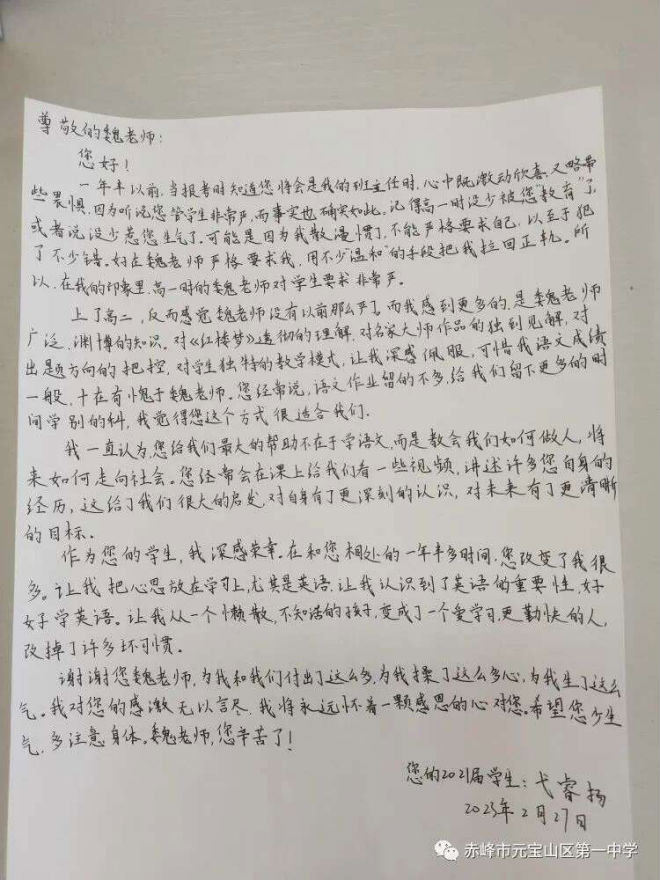 尊敬的魏老师：
您好！
一年半以前，当报考时知道您将会是我的班主任时，心中既激动欣喜，又略带
些畏惧，因为听说您管学生非常严，而事实也确实如此。记得高一时没少被您“教育”了，
或者说没少惹您生气了。可能是因为我散漫惯了，不能严格要求自己，以至于犯
了不少错。好在魏老师严格要求我，用不少“温和”的手段把我拉回正轨。所
以，在我的印象里，高一时的魏老师对学生要求非常严。
上了高二，反而感觉魏老师没有以前那么严了。而我感到更多的，是魏老师
广泛、渊博的知识，对《红楼梦》透彻的理解，对名家大师作品的独到见解，对
出题方向的把控，对学生独特的教学模式，让我深感佩服，可惜我语文成绩
一般，十在有愧于魏老师。您经常说，语文作业留的不多，给我们留下更多的时
间学别的科，我觉得您这个方式很适合我们。
我一直认为，您给我们最大的帮助不在于学语文，而是教会我们如何做人，将
来如何走向社会。您经常会在课上给我们看一些视频，讲述许多您自身的
经历，这给了我们很大的启发，对自身有了更深刻的认识，对未来有了更清晰
的目标。
作为您的学生，我深感荣幸。在和您相处的一年半多时间，您改变了我很
多。让我把心思放在学习上，尤其是英语，让我认识到了英语的重要性，好
好学英语。让我从一个懒散，不知活的孩子，变成了一个爱学习，更勤快的人，
改掉了许多坏习惯。
谢谢您魏老师，为我和我们付出了这么多，为我操了这么多心，为我生了这么
气。我对您的感激无以言尽，我将永远怀着一颗感恩的心对您。希望您少生
气，多注意身体。魏老师，您辛苦了！
您的2021届学生：弋睿扬
2023年2月27日
赤峰市元宝山区第一中学